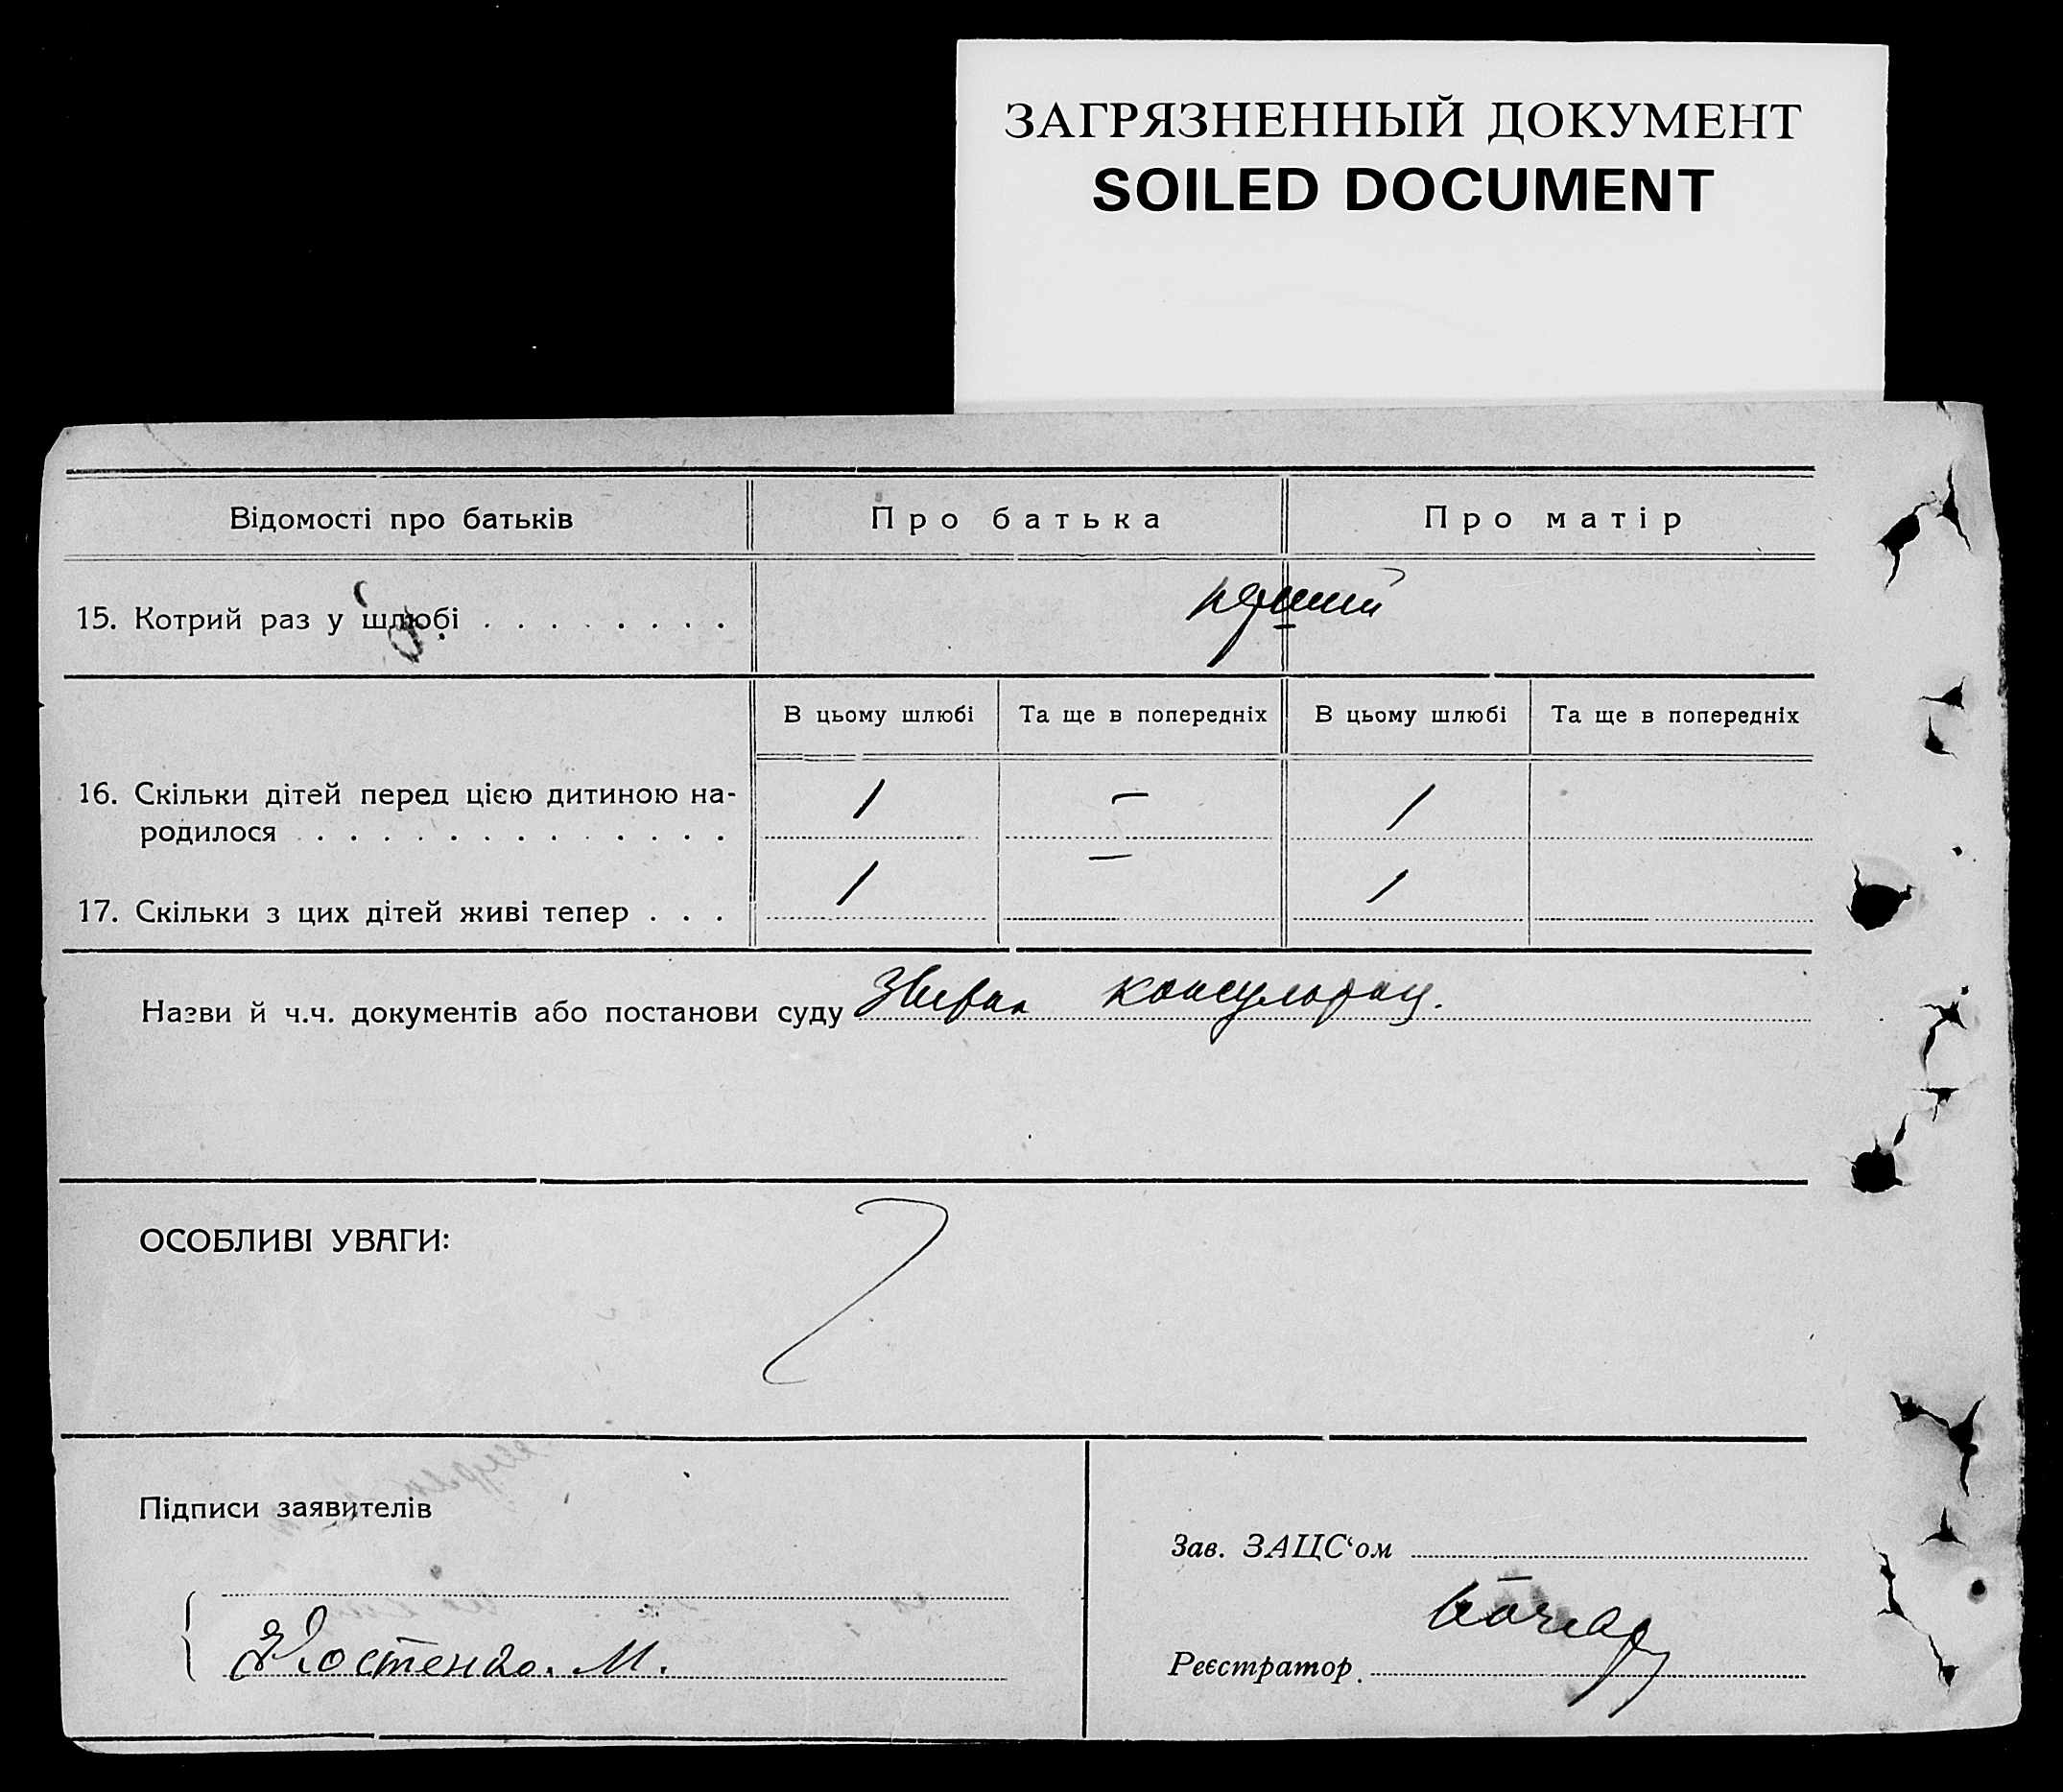 ЗАГРЯЗНЕННЫЙ ДОКУМЕНТ
SOILED DOCUMENT
Відомості про батьків Про батька Про матір
15. Котрий раз у шлюбі . . . . . . . . перший
В цьому шлюбі Та ще в попередніх В цьому шлюбі Та ще в попередніх
16. Скільки дітей перед цією дитиною на-
родилося . . . . . . . . . . . . . 1 — 1
17. Скільки з цих дітей живі тепер . . . 1 — 1
Назви й ч.ч. документів або постанови суду
ОСОБЛИВІ УВАГИ:
Підписи заявителів
Зав. ЗАЦС‘ом
Костенко. М.
Реєстратор